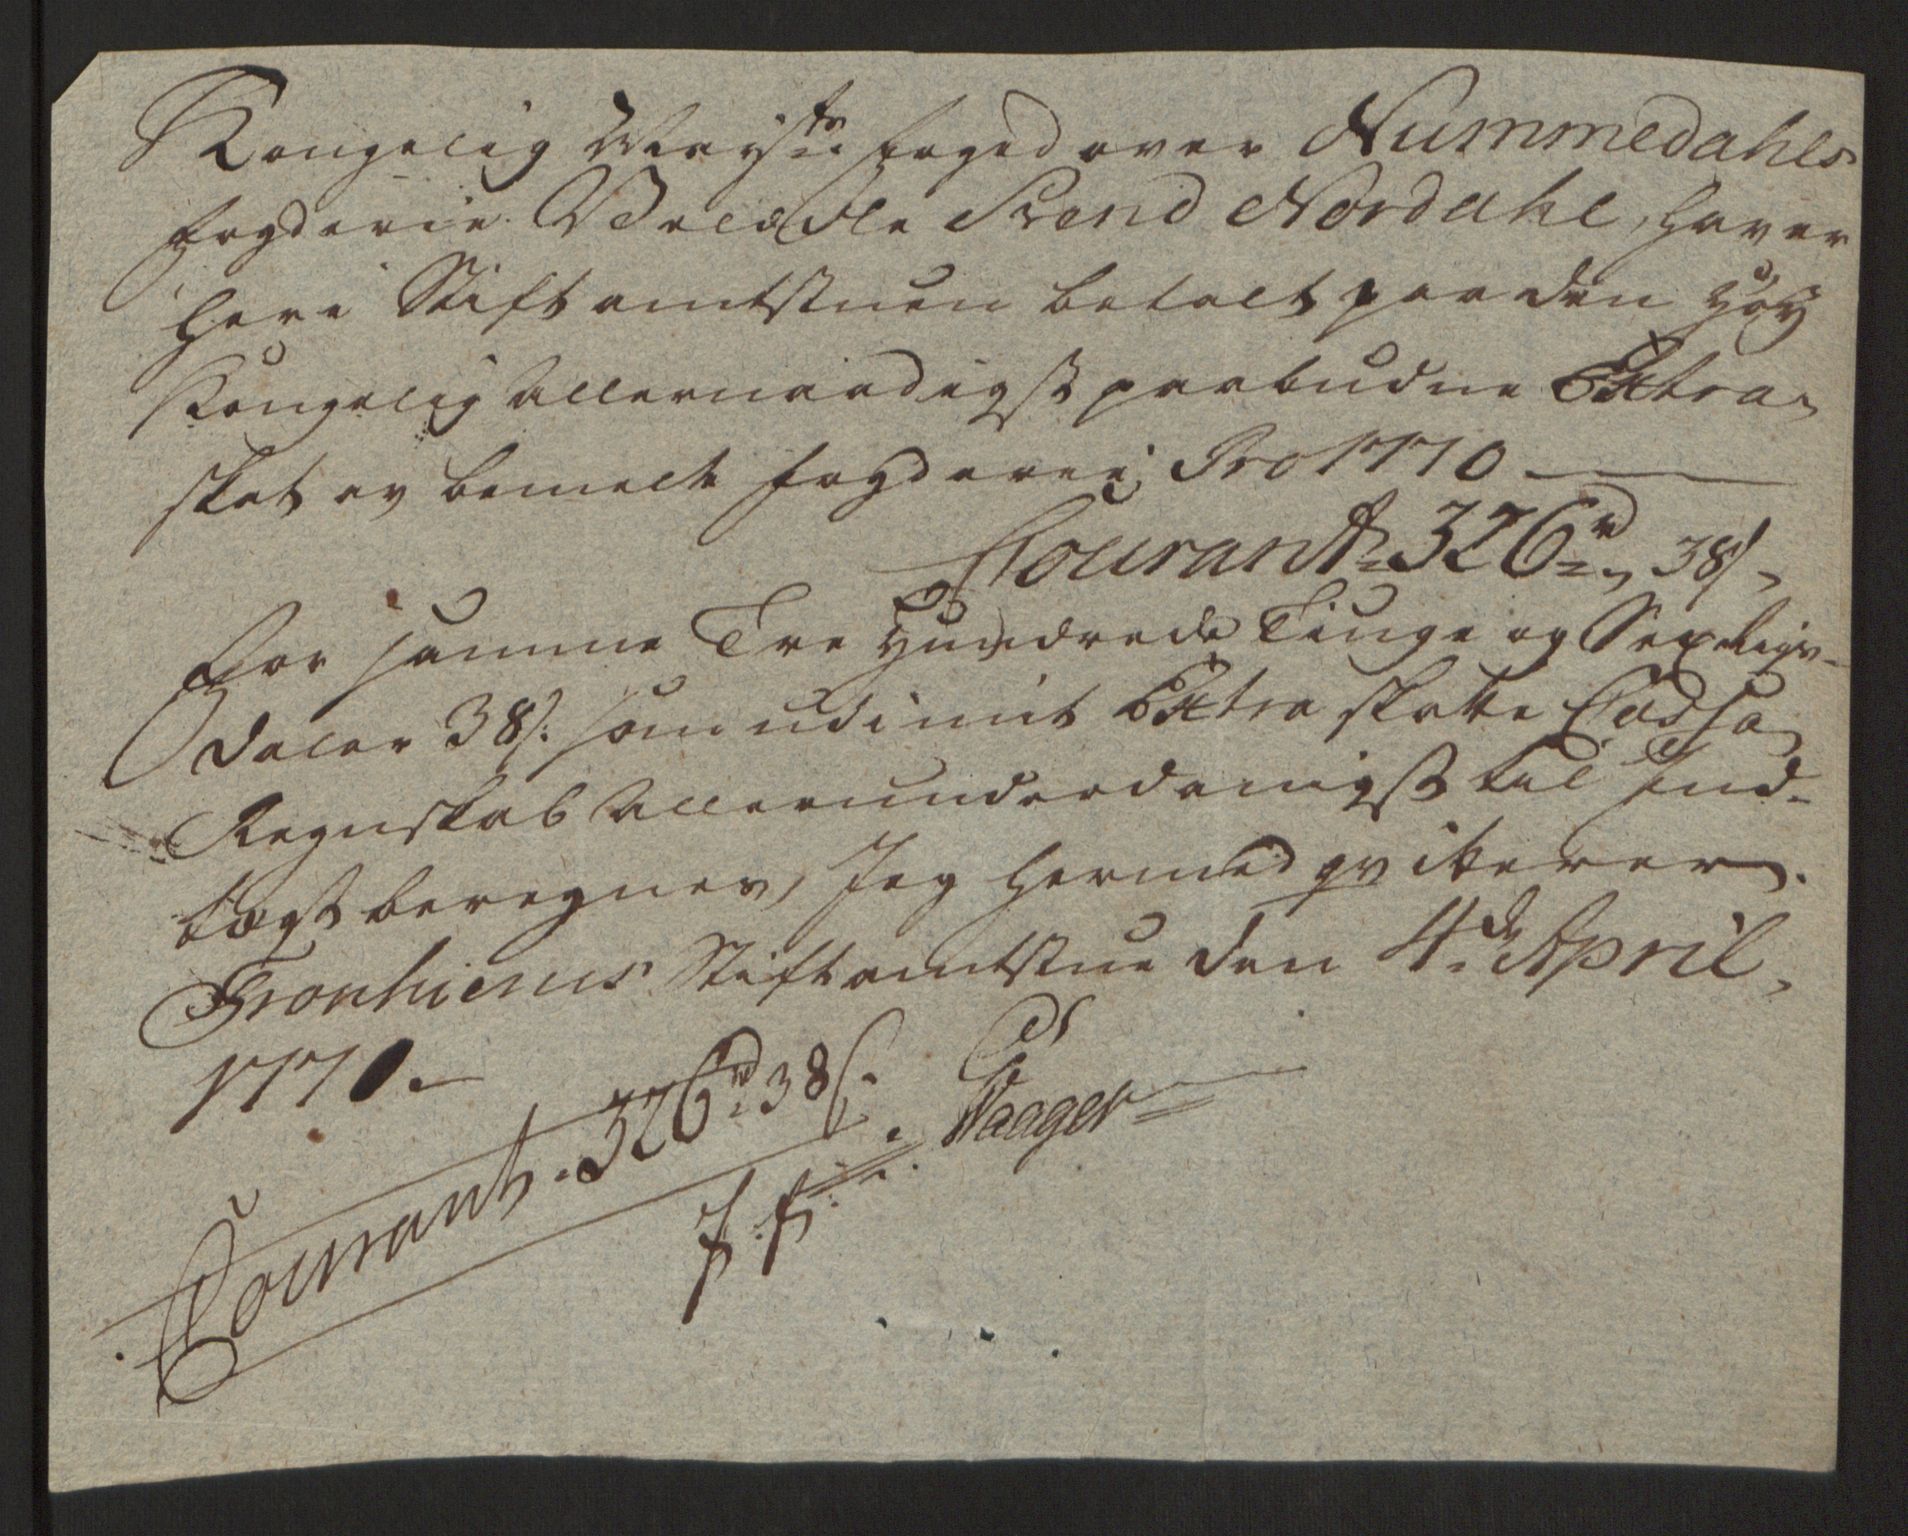 Kongelig Mayts foged over Nummedahls
fogderie Velædle Svend Nordahl, haver
her i Stiftamtstuen betalt paa den Høy
Kongelig allernaadigst paabudne Extra
skat av bemelte fogderie, Pro 1770
Courant 326 rd 38 s
For samme Tre Hundrede Tiuge og Sex Rigs-
daler 38 s. som udi mit Extra skatte Cassa
Regnskab allerunderdanigst til Ind-
tægt beregnes, Jeg hermed qvitterer.
Tronhiems Stiftamtstue den 4de April
1770.
Courant 326 rd 38 s.
Waager